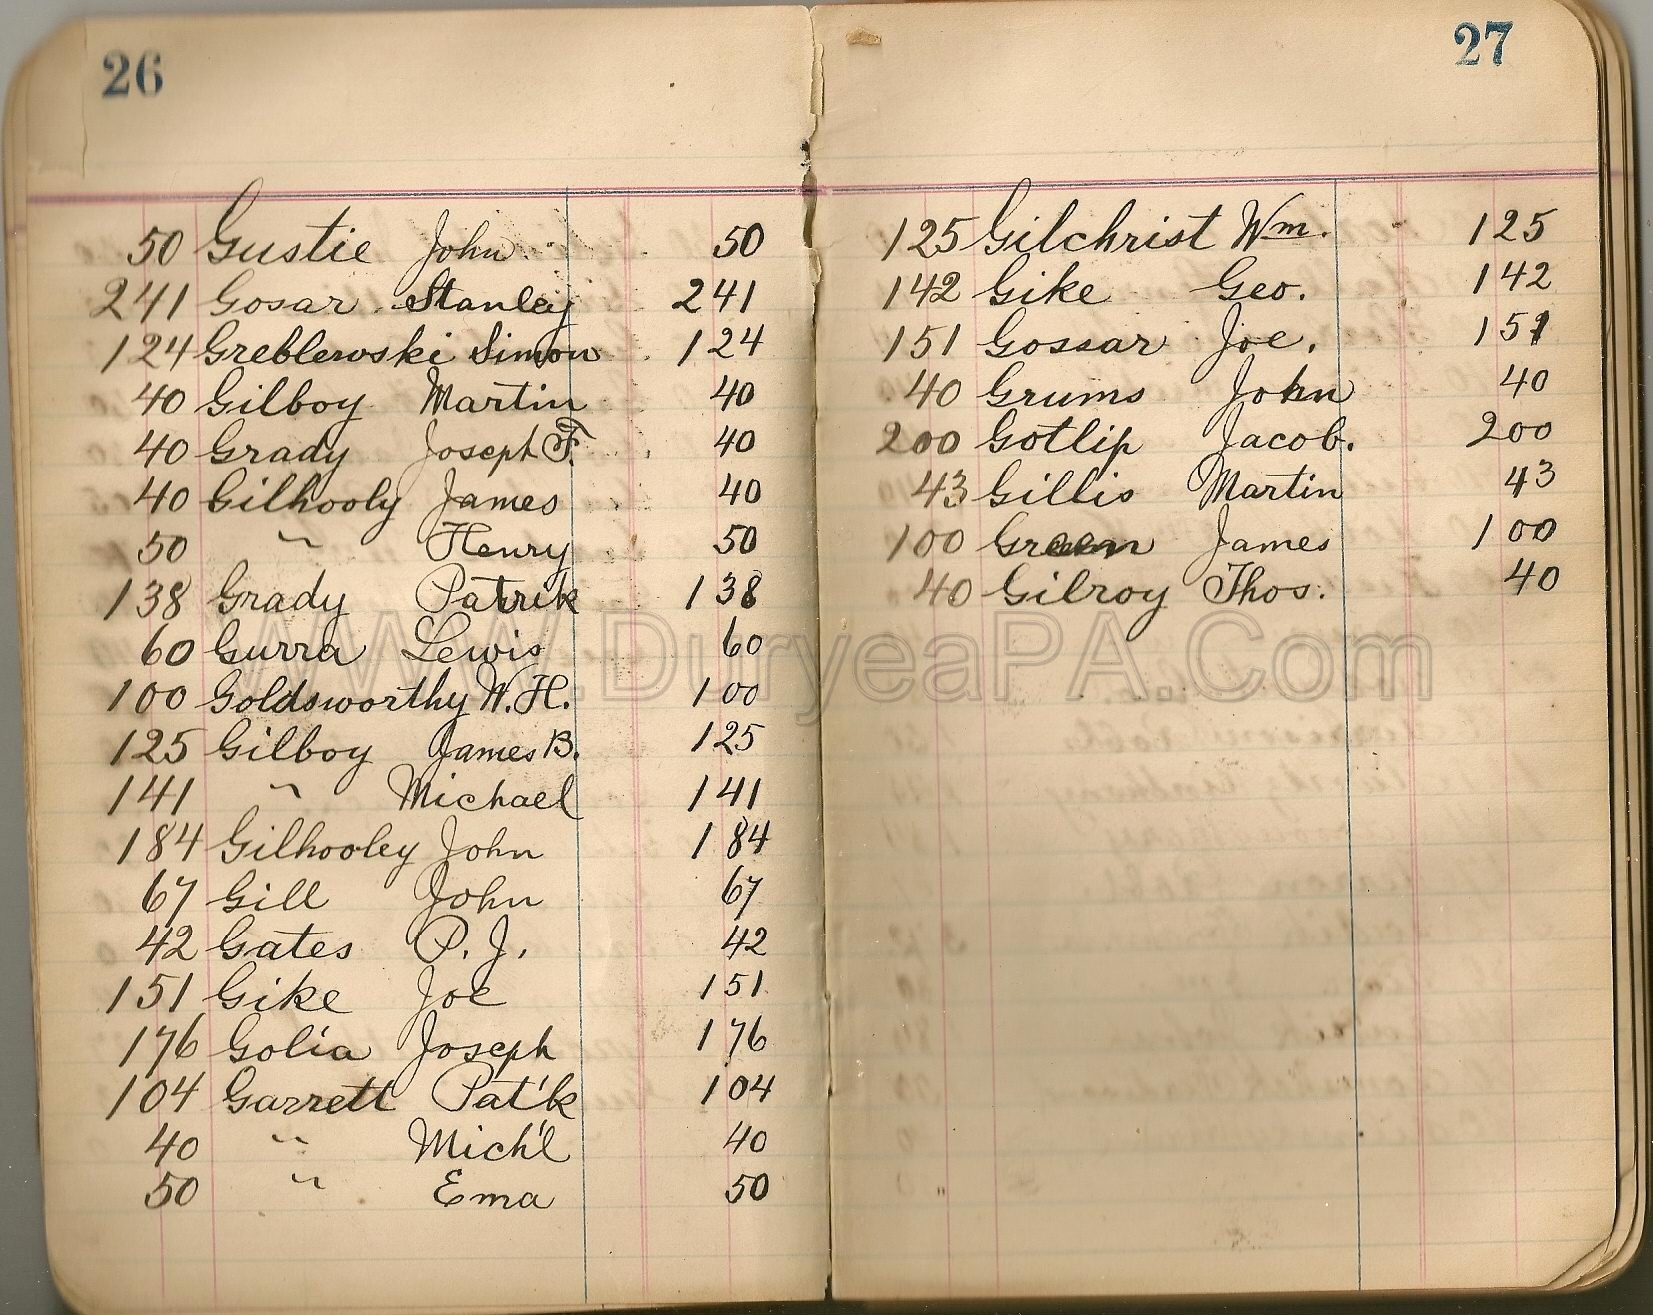 26
50 Gustie John 50
241 Gosar Stanley 241
124 Greblewski Simon 124
40 Gilboy Martin 40
40 Grady Joseph F. 40
40 Gilhooly James 40
50 " Henry 50
138 Grady Patrik 138
60 Gurra Lewis 60
100 Goldsworthy W. H. 100
125 Gilboy James B. 125
141 " Michael 141
184 Gilhooley John 184
67 Gill John 67
42 Gates P. J. 42
151 Gike Joe 151
176 Golia Joseph 176
104 Garrett Pat'k 104
40 " Mich'l 40
50 " Ema 50
27
125 Gilchrist Wm. 125
142 Gike Geo. 142
151 Gossar Joe. 151
40 Grums John 40
200 Gotlip Jacob. 200
43 Gillis Martin 43
100 Green James 100
40 Gilroy Thos. 40
WWW.DuryeaPA.Com